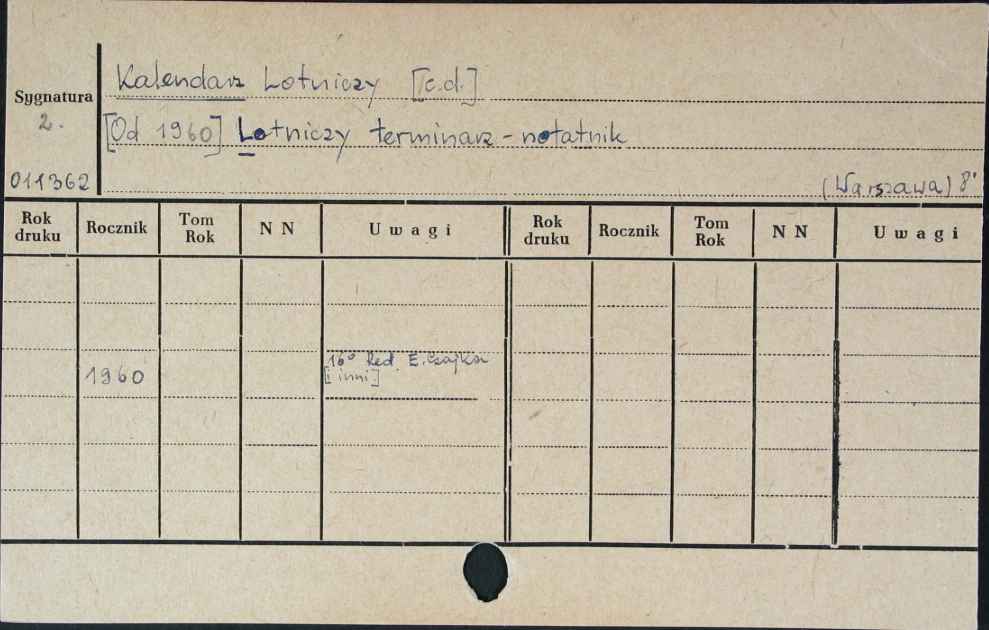 Kalendarz Lotniczy [c.d.]
Sygnatura
2.
[Od 1960] Lotniczy terminarz - notatnik
011362
(Warszawa) 8°
Rok druku Rocznik Tom Rok N N Uwagi Rok druku Rocznik Tom Rok N N Uwagi
16° Red. E. Czajkor
1960
[i inni]